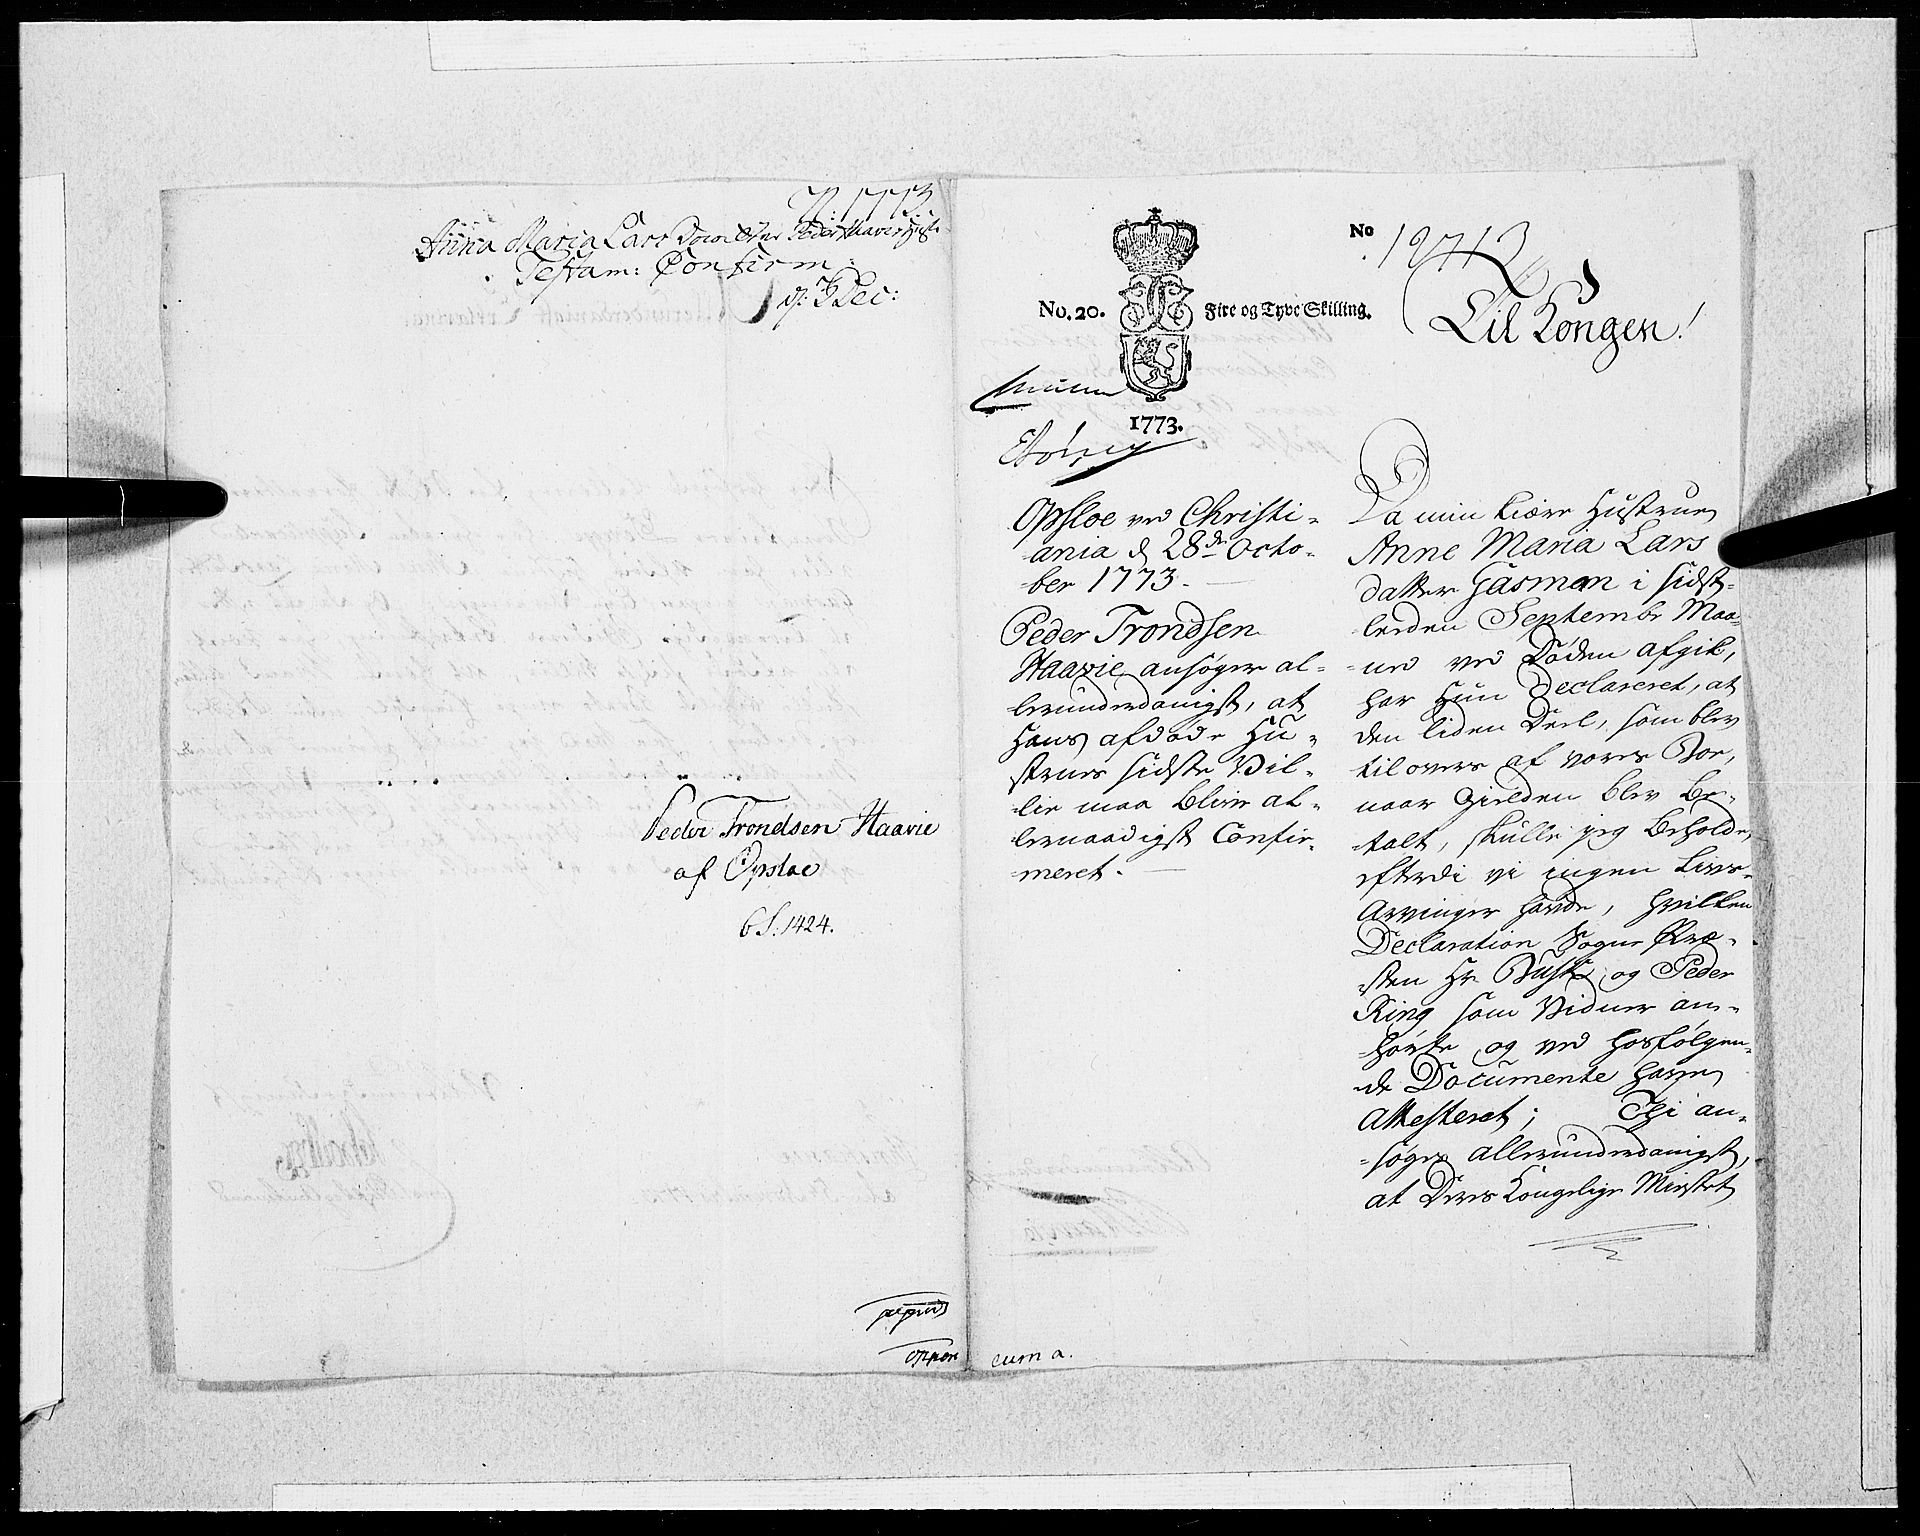 Anna Maria Lars Dotter Peder Haaves
Testam: Confirm:
d: 3 Dec:
Peder Trondsen Haavie
af Opsloe
6 S: 1424.
oppon
No. 20.
Fire og Tyve Skilling.
1773.
No 12713
Til Kongen!
Opsloe ved Christi-
ania d 28de Octo-
ber 1773.
Peder Trondsen
Haavie ansøger al-
lerunderdanigst, at
hans afdøde Hu-
strues sidste Vil-
lie maa blive al-
lernaadigst Confir-
meret.
cum a.
Da min kiære Hustrue
Anne Maria Lars
datter Gasman i sidst-
leeden Septembr Maa-
ned ved Døden afgik,
har hun Declareret, at
den liden Deel, som blev
tilovers af vores Boe,
naar Gielden blev be-
talt, skulle jeg beholde,
efterdi vi ingen Livs-
Arvinger havde, hvilken
Declaration Sogne Præ-
sten Hr Bush og Peder
Ring som Vidner an-
hørte og ved hosfølgen-
de Documente have
Attesteret; Thi an-
søges allerunderdanigst,
at Deres Kongelige Majestet